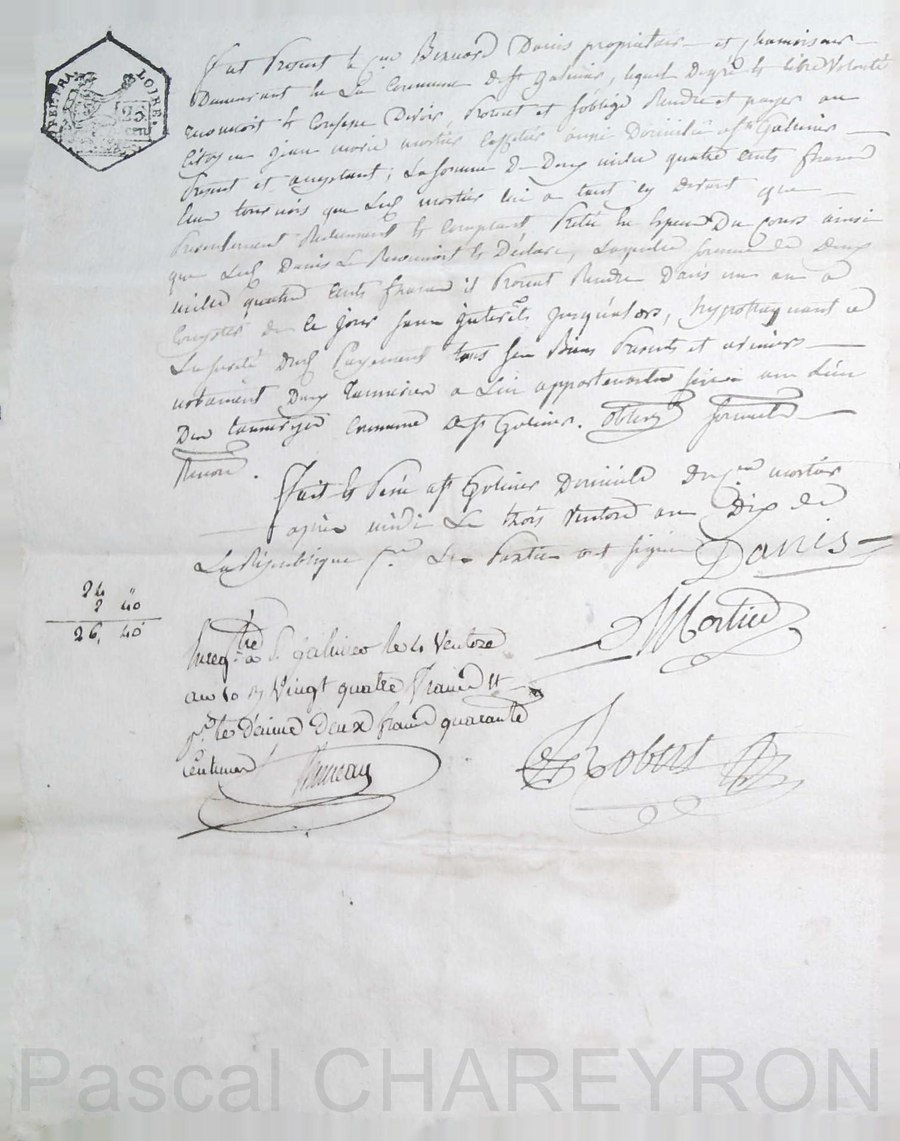 REP. FRA. LOIRE.
25
cen
fut Present le cen Bernard Danis propriétaire et chamoiseur
Demeurant en la Commune de St Galmier, lequel De gré et libre Volonté
reconnoit et confesse Devoir, Promet et s'oblige Rendre et payer au
Citoyen jean marie mortier caffetier aussi Domicilié a St Galmier
Present et acceptant; La somme De Deux mille quatre Cents francs
que led mortier lui a tant cy devant que
Presentement Reellement et Comptant, Prété en Espece Du cours ainsi
que led Danis Le Reconnoit et Declare, Laquelle somme de Deux
mille quatre Cents francs il Promet Rendre Dans un an a
Compter de Ce jour sans interets jusqu'alors, hypottequant a
La sureté dud Payement tous ses Biens Presents et avenirs
notamment Deux Tanneries a Lui appartenantes au Lieu
Des tanneries Commune de St Galmier. Obligé soumet
Renon.
Fait et Passé a St Galmier Domicile dud cen mortier
après midi Le trois Ventose an Dix de
La République fse Les Parties ont signé Danis
24 "
2 40
26, 40
Mortier
Enregtré a St galmier le 4 Ventose
an 10 Vingt quatre francs
Deux francs quarante
Centimes
Robert